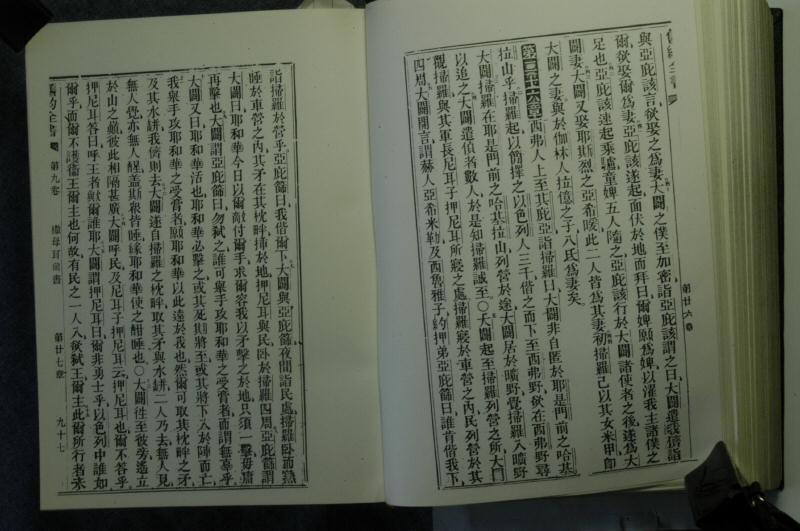 與亞庇該言欲娶之為妻大闢之僕至加密詣亞庇該謂之曰大闢遣我儕詣
爾欲娶爾為妻亞庇該遂起面伏於地而拜曰爾婢願為婢以濯我主諸僕之
足也亞庇該速起乘驢童婢五人隨之亞庇該行於大闢諸使者之後遂為大
闢妻大闢又娶耶斯烈之亞希暖此二人皆為其妻初掃羅已以其女米甲即
大闢之妻與於伽林人拉億之子八氏為妻矣
第二十六章西弗人上至其庇亞詣掃羅曰大闢非自匿於耶是門前之哈基
拉山乎掃羅起以簡擇之以色列人三千偕之而下至西弗野欲在西弗野尋
大闢掃羅在耶是門前之哈基拉山列營於途大闢居於曠野覺掃羅入曠野
以追之大闢遣偵者數人於是知掃羅誠至○大闢起至掃羅列營之所大闢
觀掃羅與其軍長尼耳子押尼耳所寢之處掃羅寢於車營之內民列營於其
四周大闢開言謂赫人亞希米勒及西魯雅子約押弟亞庇篩曰誰肯偕我下
第廿六章
詣掃羅於營乎亞庇篩曰我偕爾下大闢與亞庇篩夜間詣民處掃羅臥而寢
睡於車營之內其矛在其枕畔插於地押尼耳與民臥於掃羅四周亞庇篩謂
大闢曰耶和華今日以爾敵付爾手求爾容我以矛擊之於地只須一擊毋庸
再擊也大闢謂亞庇篩曰勿弒之誰可舉手攻耶和華之受膏者而謂無辜乎
大闢又曰耶和華活也耶和華必擊之或其死期將至或其將下入於陣而亡
我舉手攻耶和華之受膏者願耶和華以此遠於我也然爾可取其枕畔之矛
及其水缾我儕則去大闢遂自掃羅之枕畔取其矛與水缾二人乃去無人見
無人覺亦無人醒蓋斯眾皆睡緣耶和華使之酣睡也○大闢往至彼旁遙立
於山之巔彼此相隔甚廣大闢呼民及尼耳子押尼耳云押尼耳也爾不答乎
押尼耳答曰呼王者爾誰耶大闢謂押尼耳曰爾非勇士乎以色列中誰如
爾乎而爾不護衛王爾主也何故有民之一人入欲弒王爾主此爾所行者未
舊約全書 第九卷 撒母耳前書 第廿七章 九十七